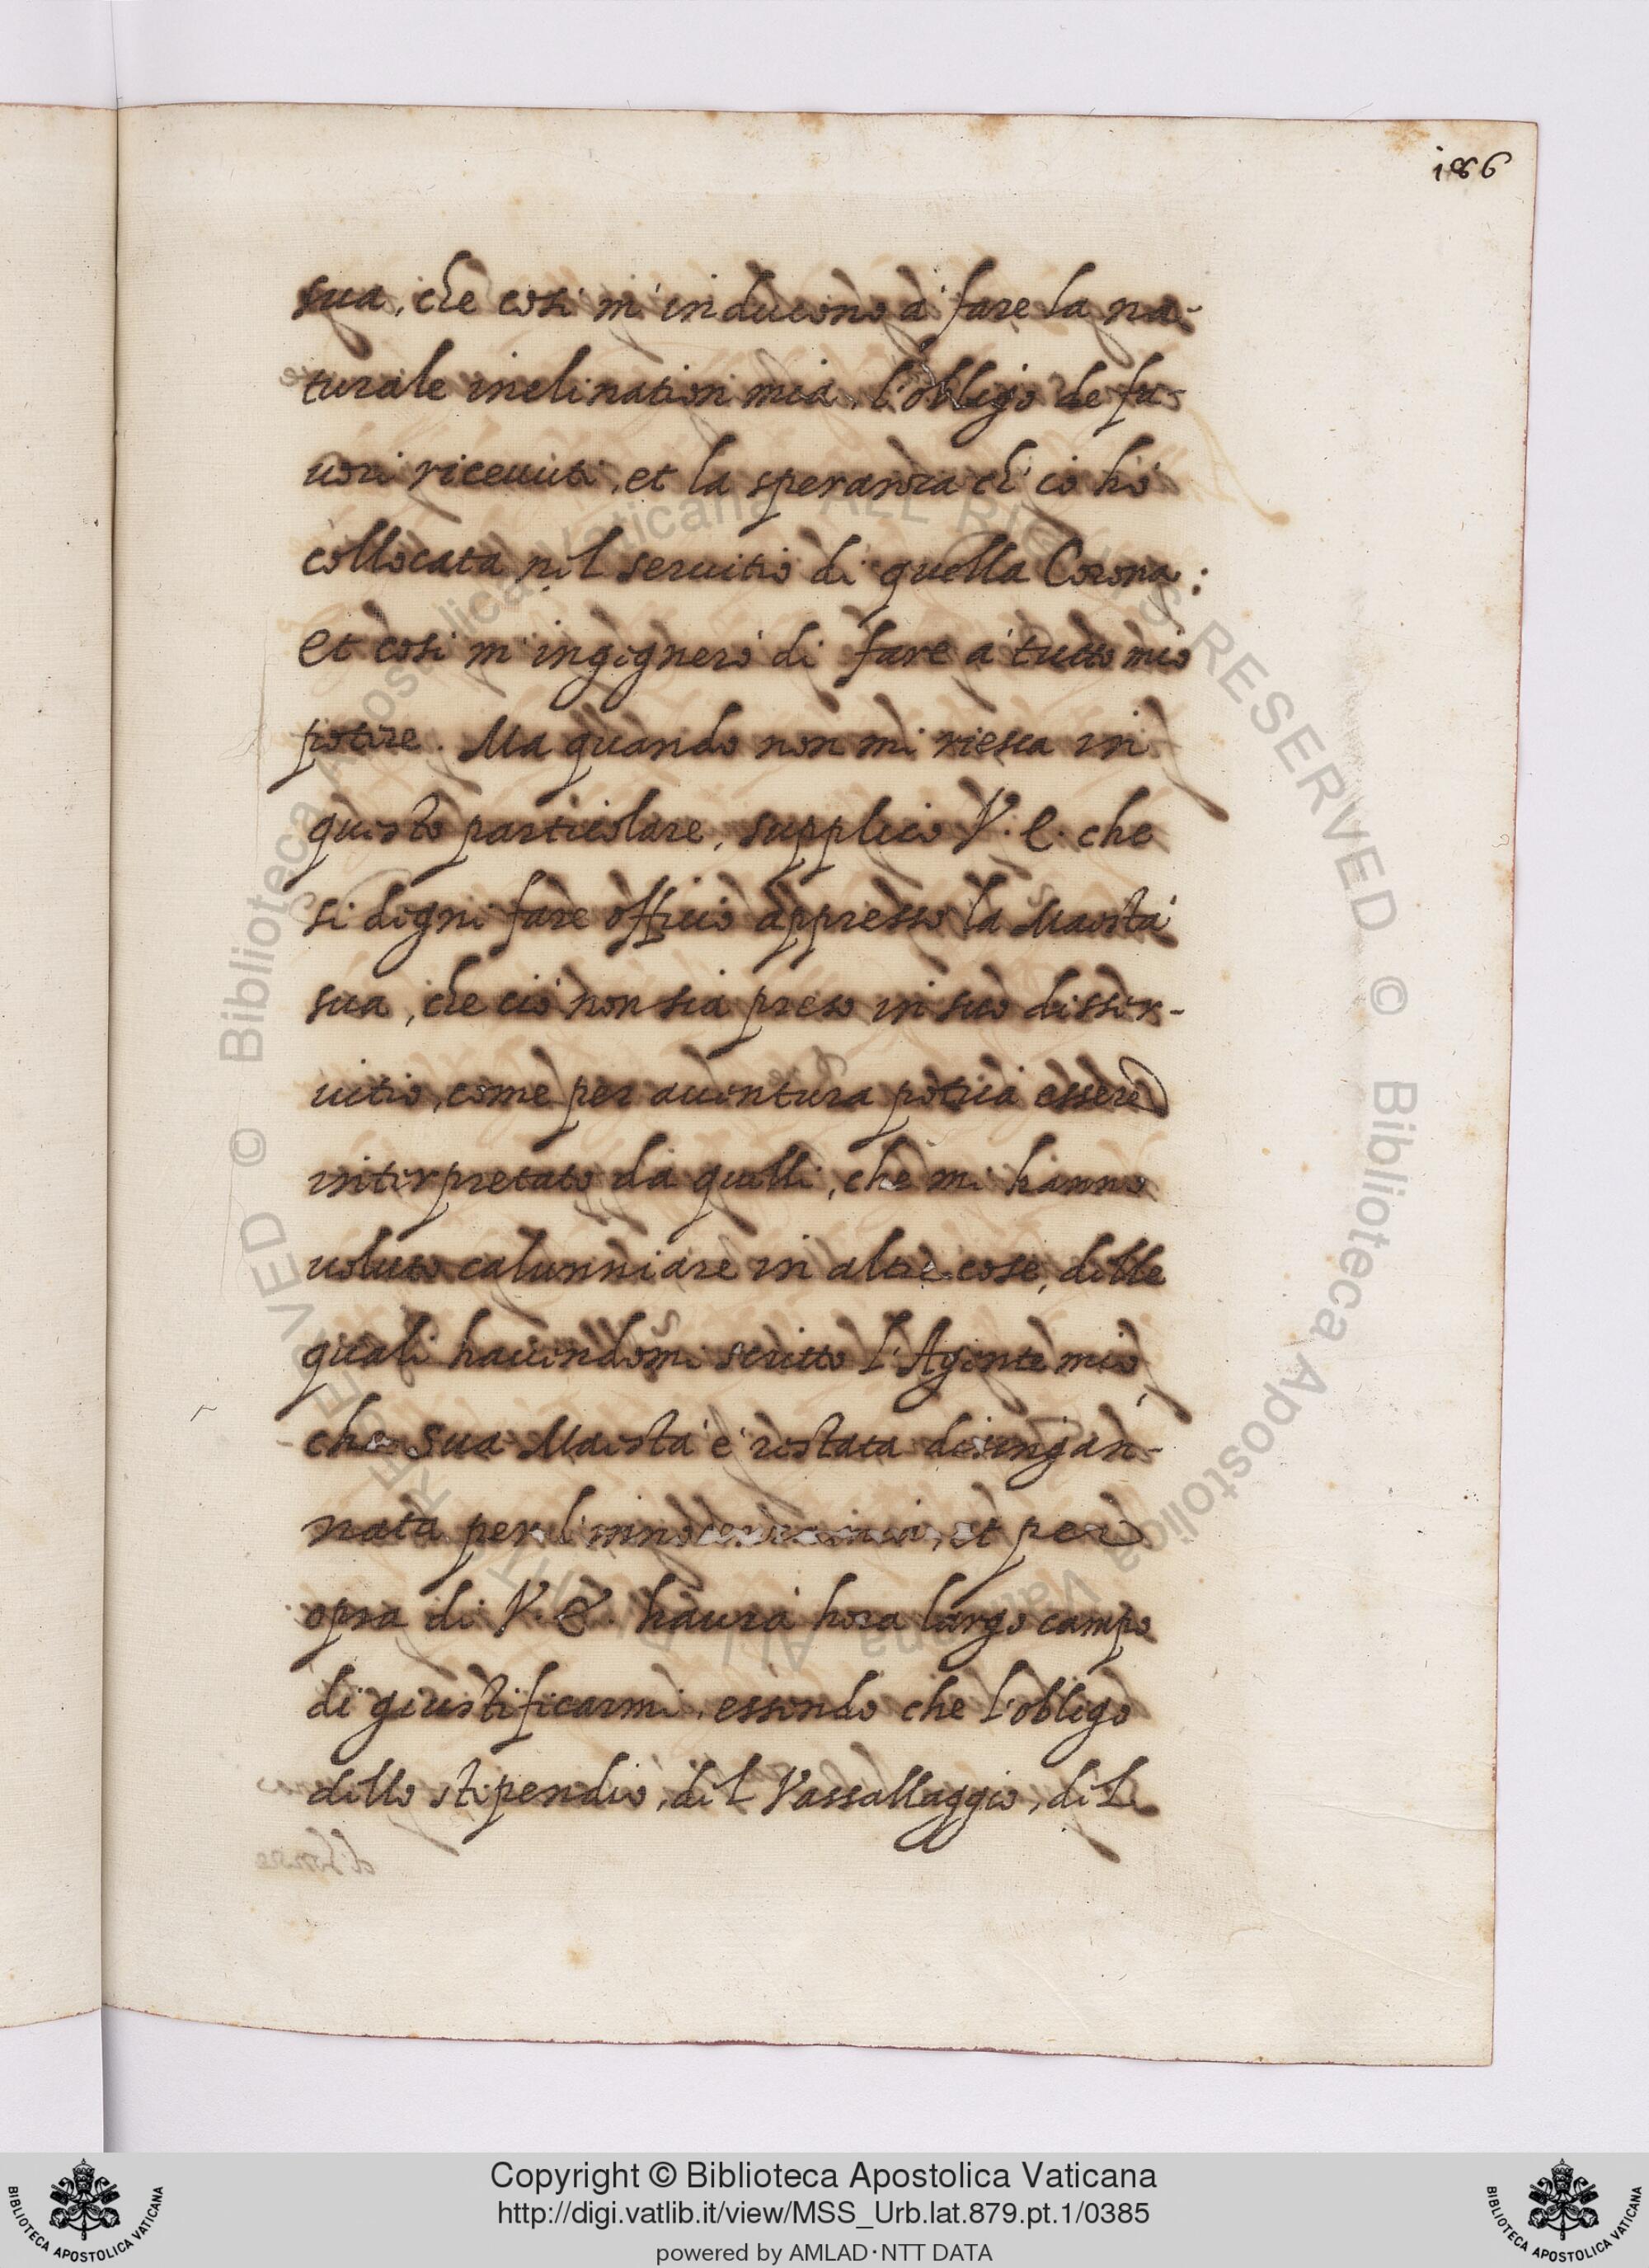 186
sua, che cosi m'inducono à fare la na-
turale inclination mia, l'obligo de fa-
uori riceuuti, et la speranza ch'io hò
collocata nel seruitio di quella Corona:
et cosi m'ingegnerò di fare à tutto mio
potere. Ma quando non mi riesca in
questo particolare, supplico V. E. che
si degni fare offitio appresso la Maestà
sua, che ciò non sia preso in suo disser-
uitio, come per auentura potria essere
interpretato da quelli, che mi hanno
uoluto calunniare in altre cose, delle
quali hauendomi scritto l'Agente mio,
che Sua Maestà è restata disingan-
nata per l'innocenza mia, et per
opra di V. E. haurà hora largo campo
di giustificarmi, essendo che l'obligo
dello stipendio, del Vassallaggio, del
© Biblioteca Apostolica Vaticana ALL RIGHTS RESERVED © Biblioteca Apostolica Vaticana ALL RIGHTS RESERVED
Copyright © Biblioteca Apostolica Vaticana
http://digi.vatlib.it/view/MSS_Urb.lat.879.pt.1/0385
powered by AMLAD·NTT DATA
BIBLIOTECA APOSTOLICA VATICANA
BIBLIOTECA APOSTOLICA VATICANA